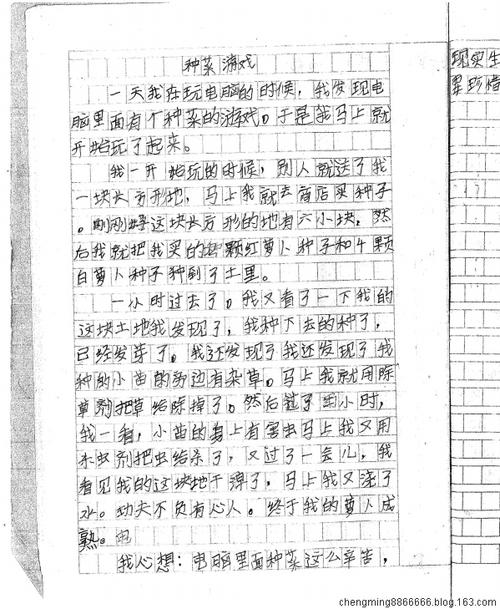 种菜游戏
一天我在玩电脑的时候，我发现电
脑里面有个种菜的游戏。于是我马上就
开始玩了起来。
我一开始玩的时候，别人就送了我
一块长方形地，马上我就去商店买种子
。刚刚好这块长方形的地有六小块，然
后我就把我买的 颗红萝卜种子和4颗
白萝卜种子种到了土里。
一小时过去了。我又看了一下我的
这块土地我发现了，我种下去的种子，
已经发芽了。我还发现了我还发现了我
种的小苗的旁边有杂草。马上我就用除
草剂把草给除掉了。然后 小时，
我一看，小苗的身上有害虫马上我又用
杀虫剂把虫给杀了，又过了一会儿，我
看见我的这块地干 了，马上我又浇了
水。功夫不负有心人。终于我的萝卜成
熟。
我心想：电脑里面种菜这么辛苦，
现实生
要珍惜
chengming8866666.blog.163.com